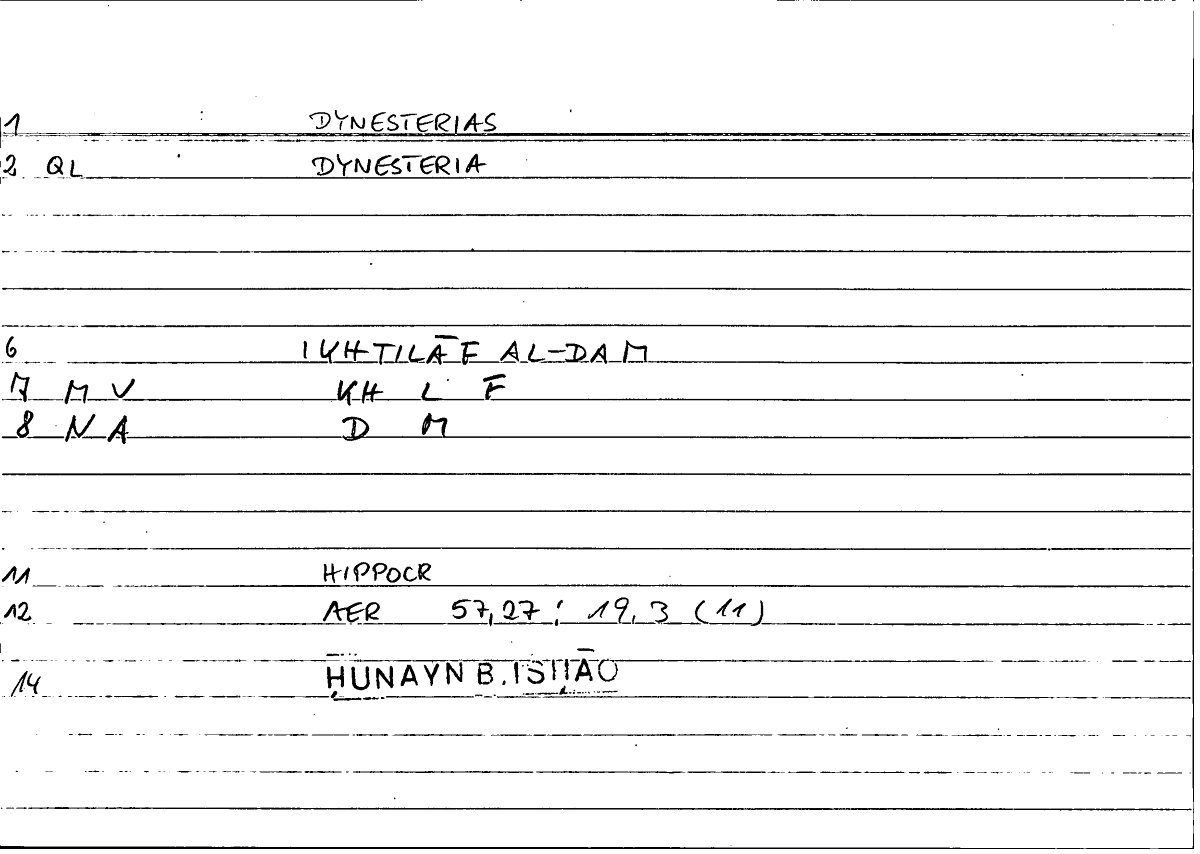 1 DYNESTERIAS
2 QL DYNESTERIA
6 IKHTILĀF AL-DAM
7 M V KH L F
8 N A D M
11 HIPPOCR
12 AER 57,27 ; 19,3 (11)
14 ḤUNAYN B. ISḤĀQ